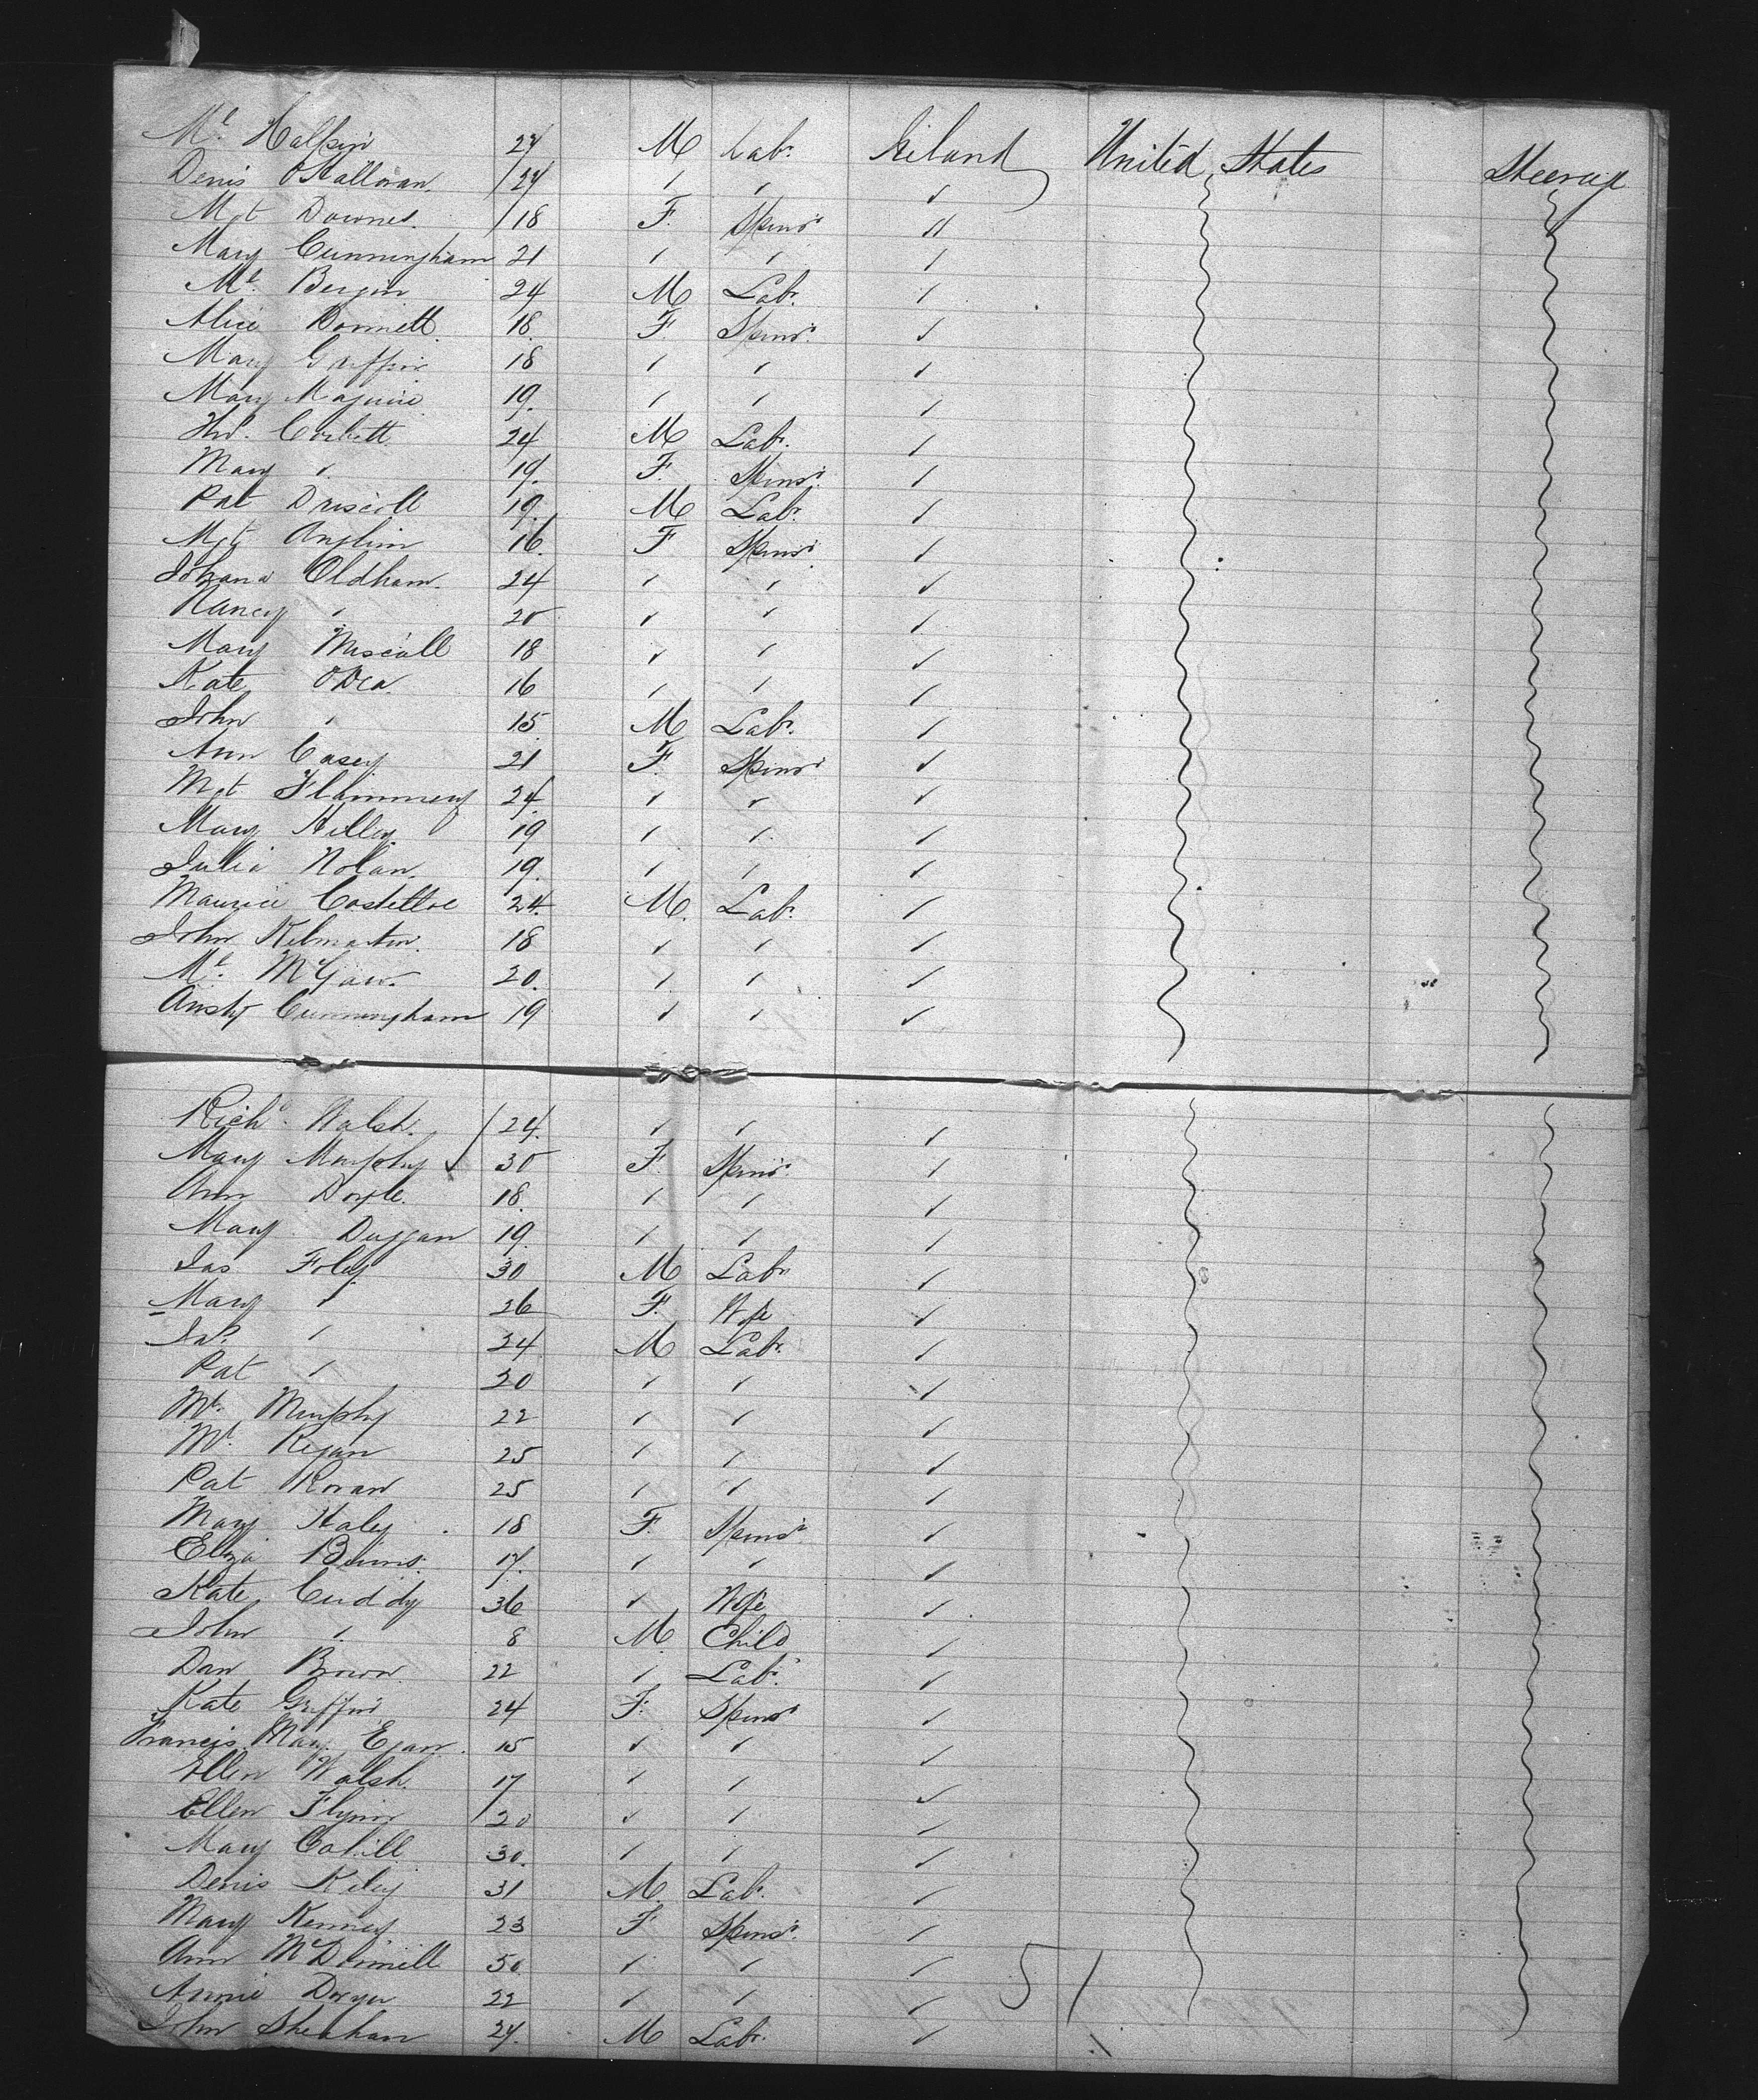 Ml. Halpin 27 M Labr. Ireland United States Steerage
Denis O'Halloran 24 " " "
Mgt Downes 18 F. Spinsr "
Mary Cunningham 21 " " "
Ml. Bergin 24 M Labr. "
Alice Donnell 18 F. Spinsr. "
Mary Griffin 18 " " "
Mary Maguire 19. " " "
Corbett 24 M Labr. "
Mary " 19. F. Spinsr. "
Pat Driscoll 19. M Labr. "
Mgt Anglim 16. F Spinsr "
Johana Oldham. 24 " " "
Nancy " 20 " " "
Mary 18 " " "
Kate O'Dea 16 " " "
John " 15 M Labr. "
Ann Casey 21 F. Spinsr "
Mgt Flammery 24. " " "
Mary Kelley 19 " " "
Julia Nolan. 19. " " "
Maurice Costelloe 24. M. Labr. "
John Kilmartin. 18 " " "
Ml. McGaw. 20. " " "
Ansty Cunningham 19 " " "
Richd. Walsh. 24. " " "
Mary Murphy 30 F. Spinsr. "
Ann Doyle. 18. " " "
Mary Duggan 19. " " "
Jas Foley 30 M Labr "
Mary " 26 F. Wife "
Jas. " 24 M Labr. "
Pat " 20 " " "
Ml. Murphy 22 " " "
Ml. Regan 25 " " "
Pat Horan 25 " " "
Mary Haley 18 F. Spinsr. "
Eliza Binns. 17. " " "
Kate Cuddy 36 " Wife "
John " 8 M Child "
Dan Brown 22 " Labr. "
Kate Griffin 24 F. Spinsr "
Francis Mary Egan. 15 " " "
Ellen Walsh. 17 " " "
Ellen Flynn 20 " " "
Mary Cahill 30. " " "
Denis Kiley 31 M. Labr. "
Mary Kenney 23 F Spinsr. "
Ann McDonnell 50 " " "
Annie Dwyer 22 " " " 51
John Sheahan 27. M Labr. "